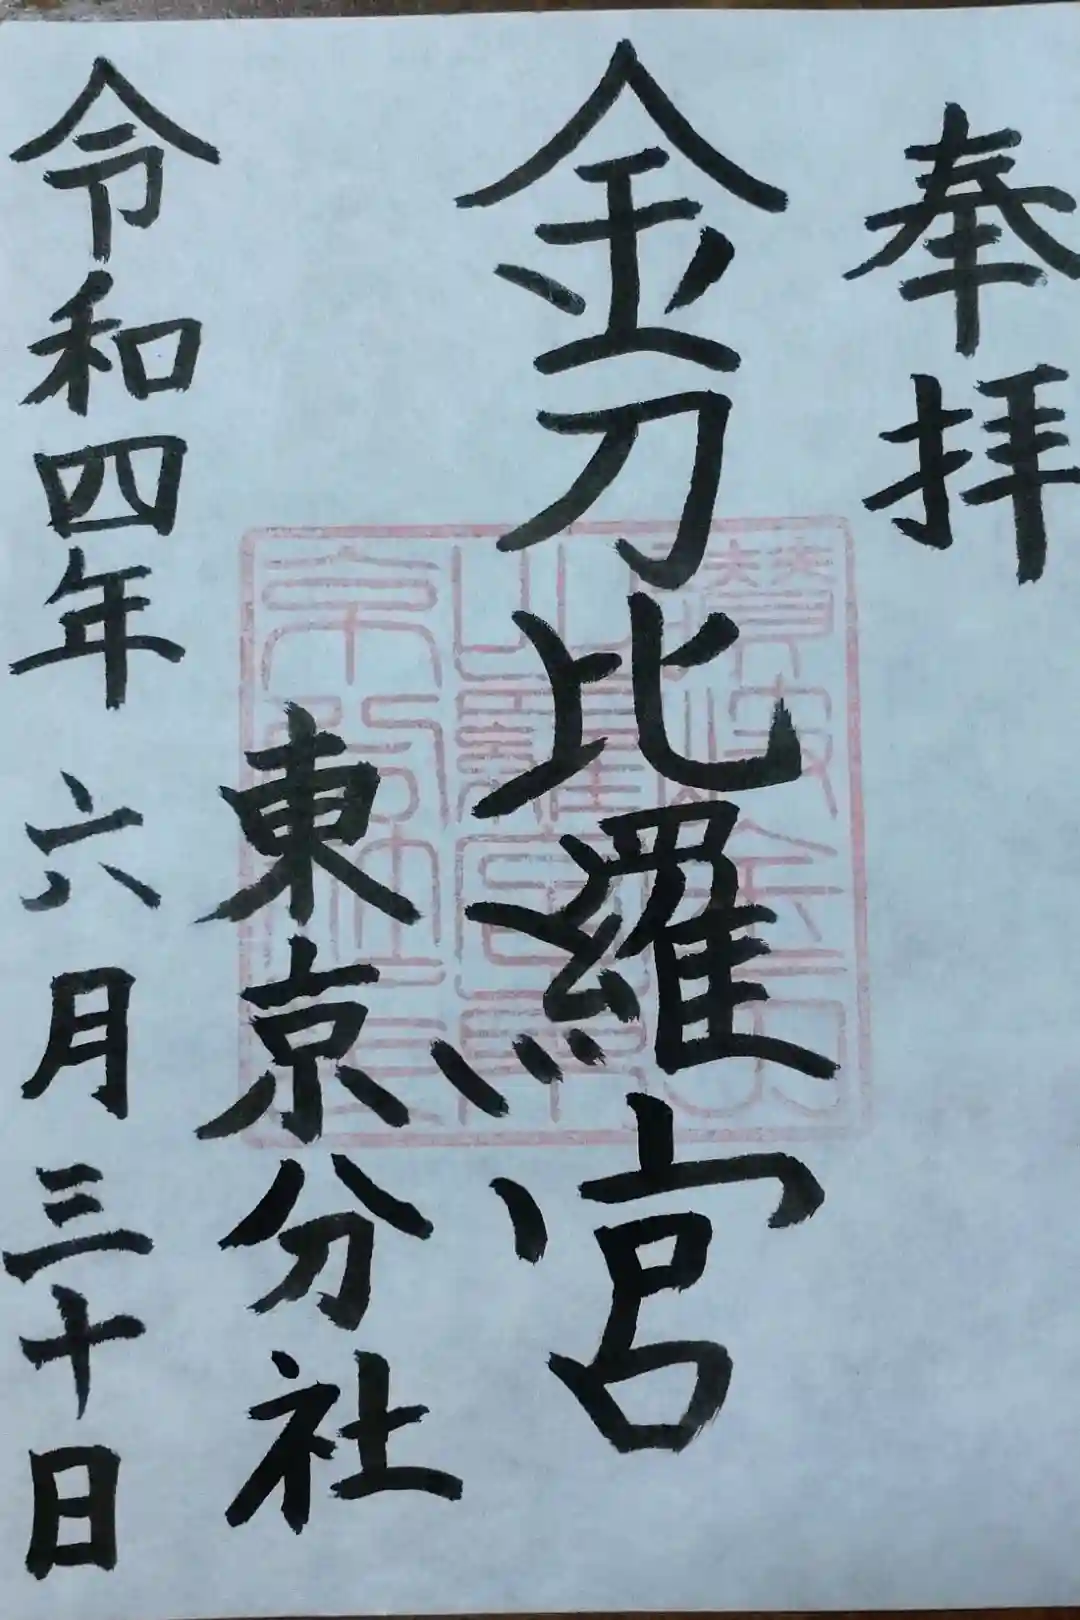 奉拝
金刀比羅宮
東京分社
令和四年六月三十日